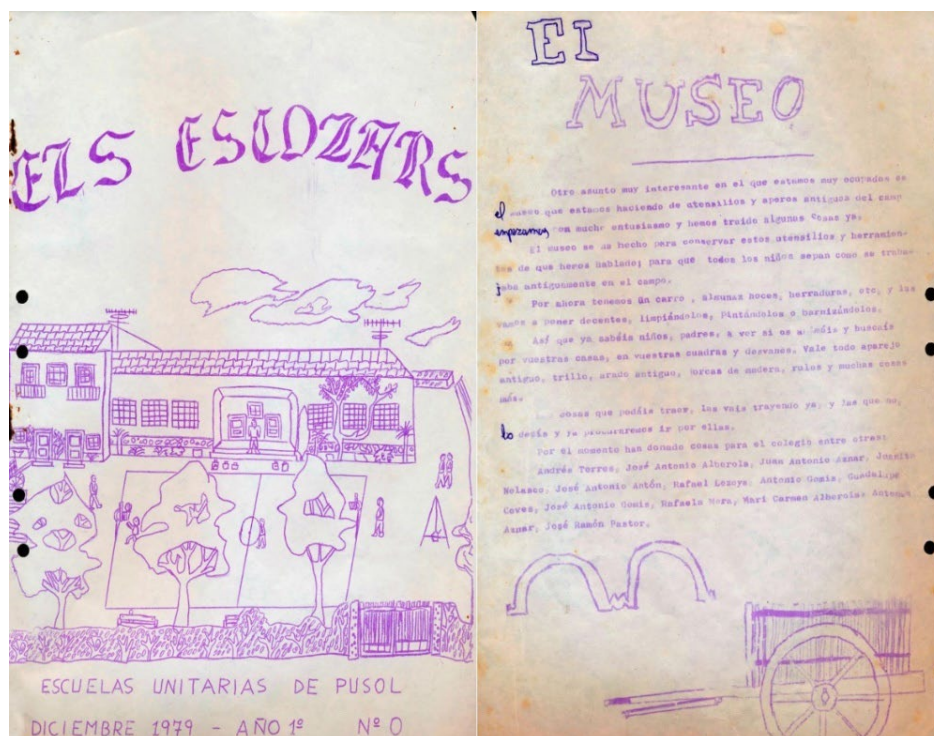 ELS ESCOLARS
ESCUELAS UNITARIAS DE PUSOL
DICIEMBRE 1979 - AÑO 1º Nº 0
El
MUSEO
Otro asunto muy interesante en el que estamos muy ocupados es
el museo que estamos haciendo de utensilios y aperos antiguos del camp
empezamos con mucho entusiasmo y hemos traido algunas cosas ya.
El museo se ha hecho para conservar estos utensilios y herramien-
tas de que hemos hablado; para que todos los niños sepan como se traba-
jaba antiguamente en el campo.
Por ahora tenemos un carro, algunas hoces, herraduras, etc, y las
vamos a poner decentes, limpiándolos, Pintándolos o barnizándolos.
Así que ya sabéis niños, padres, a ver si os y buscáis
por vuestras casas, en vuestras cuadras y desvanes. Vale todo aparejo
antiguo, trillo, arado antiguo, horcas de madera, palos y muchas cosas
más.
cosas que podáis traer, las vais trayendo ya, y las que no,
lo decís y ya procuraremos ir por ellas.
Por el momento han donado cosas para el colegio entre otras:
Andrés Torres, José Antonio Alberola, Juan Antonio Aznar,
José Antonio Antón, Rafael Antonio Gomis, Guadalupe
Coves, José Antonio Gomis, Rafaela Mora, Mari Carmen Alberola,
Aznar, José Ramón Pastor.